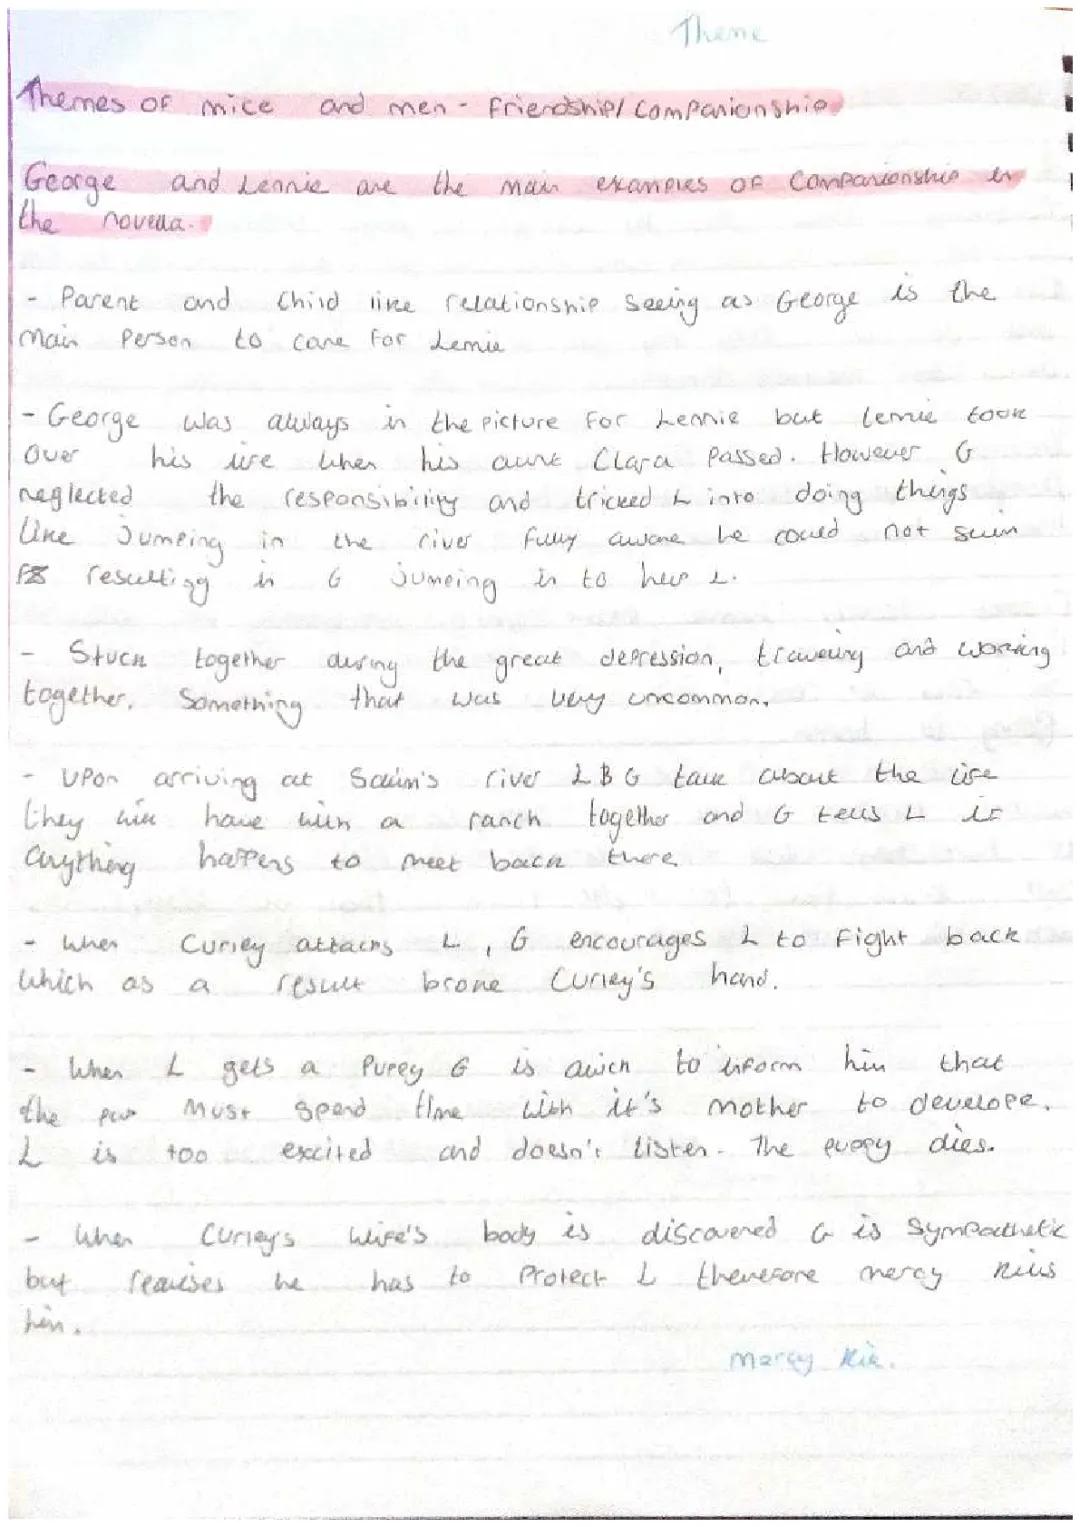 Theme
Themes of mice and men - Friendship/Companionship
George and Lennie are the main examples of Companionship in
the novella.
- Parent and Child like relationship seeing as George is the
main Person to care for Lennie
- George was always in the picture for Lennie but Lennie took
over his life when his aunt Clara passed. However G
neglected the responsibility and tricked L into doing things
like Jumping in the river fully aware he could not swim
resulting in G jumping in to help L.
- Stuck together during the great depression, traveling and working
together. Something that was very uncommon.
- Upon arriving at river L & G talk about the life
they will have with a ranch together and G tells L if
anything happens to meet back there
- When Curley attacks L, G encourages L to Fight back
which as a result broke Curley's hand.
- When L gets a Puppy G is quick to inform him that
the pup Must spend time with it's mother to develope.
L is too excited and doesn't listen. The puppy dies.
- When Curley's Wife's body is discovered G is Sympathetic
but realises he has to Protect L therefore mercy kills
him.
mercy kill.